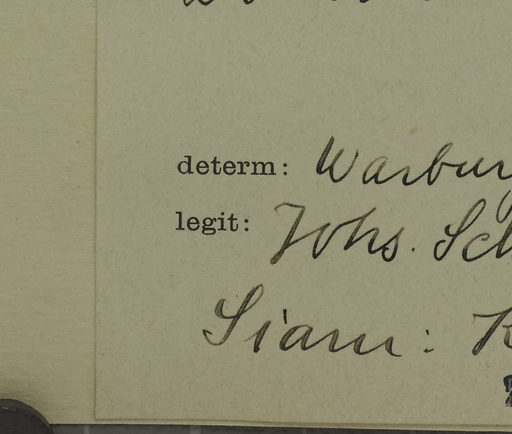 determ: Warbur
legit: Johs. Sch
Siam: K